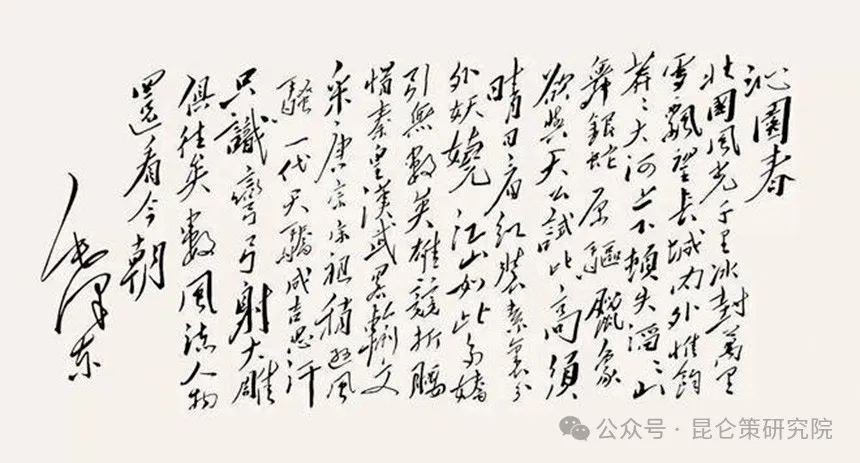 沁園春
北國風光千里冰封萬里
雪飄望長城內外惟餘
莽々大河上下頓失滔々山
舞銀蛇原驅臘象
欲與天公試比高須
晴日看紅裝素裹分
外妖嬈 江山如此多嬌
引無數英雄競折腰
惜秦皇漢武略輸文
采唐宗宋祖稍遜風
騷一代天驕成吉思汗
只識彎弓射大雕
俱往矣數風流人物
還看今朝
毛澤東
公众号·昆仑策研究院